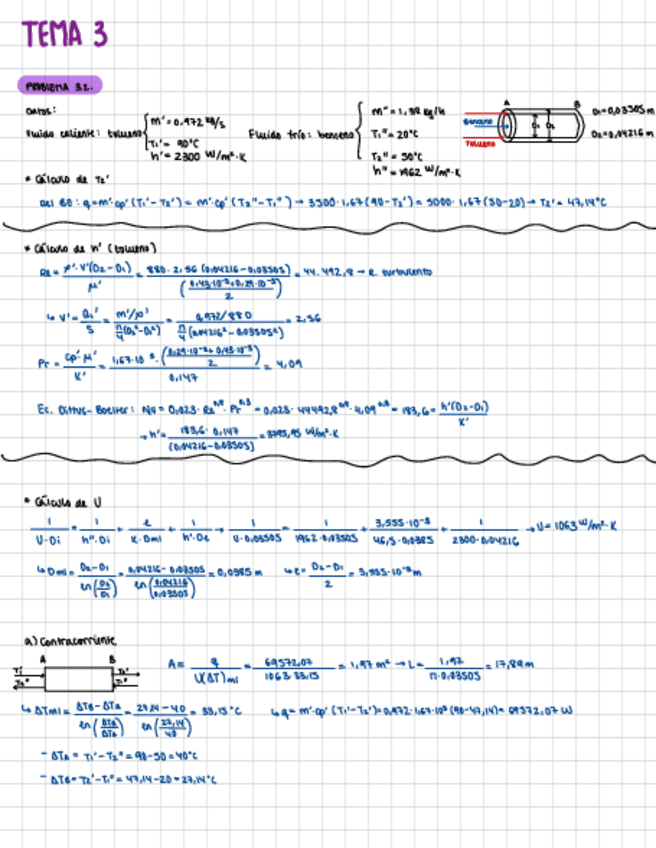 TEMA 3
PROBLEMA 3.2.
Datos:
Fluido caliente: tolueno { m' = 0.972 kg/s
T1' = 90°C
h' = 2300 W/m²·K
Fluido frío: benceno { m'' = 1,38 kg/h
T1'' = 20°C
T2'' = 50°C
h'' = 1962 W/m²·K
A B
Benceno
Tolueno
D1 D2
D1=0,03505 m
D2=0,04216 m
* Cálculo de T2'
Del BE: q = m'·cp' (T1'-T2') = m''·cp'' (T2''-T1'') → 3500·1,67(90-T2') = 5000·1,67(50-20) → T2' = 47,14°C
* Cálculo de h' (tolueno)
Re = ρ'·V'(D2-D1) / μ' = 880·2,56 (0,04216-0,03505) / (0,43·10⁻³+0,29·10⁻³ / 2) = 44.492,8 → R. turbulento
↳ V' = Q'/S = m'/ρ' / π/4 (D2²-D1²) = 0,972/880 / π/4 (0,04216²-0,03505²) = 2,56
Pr = cp'·μ' / K' = 1,67·10³·(0,29·10⁻³+0,43·10⁻³ / 2) / 0,147 = 4,09
Ec. Dittus-Boelter: Nu = 0,023·Re^0,8·Pr^0,3 = 0,023·44492,8^0,8·4,09^0,3 = 183,6 = h'(D2-D1) / K'
→ h' = 183,6·0,147 / (0,04216-0,03505) = 3795,95 W/m²·K
* Cálculo de U
1 / U·Di = 1 / h''·Di + e / K·Dml + 1 / h'·De → 1 / U·0,03505 = 1 / 1962·0,03505 + 3,555·10⁻³ / 46,5·0,0385 + 1 / 2300·0,04216 → U = 1063 W/m²·K
↳ Dml = D2-D1 / ln(D2/D1) = 0,04216-0,03505 / ln(0,04216/0,03505) = 0,0385 m ↳ e = D2-D1 / 2 = 3,555·10⁻³ m
a) Contracorriente
A B
T1' T2'
T2'' T1''
A = q / U(ΔT)ml = 69572,07 / 1063·33,15 = 1,97 m² → L = 1,97 / π·0,03505 = 17,89 m
↳ ΔTml = ΔTB-ΔTA / ln(ΔTB/ΔTA) = 27,14-40 / ln(27,14/40) = 33,15°C ↳ q = m'·cp' (T1'-T2') = 0,972·1,67·10³ (90-47,14) = 69572,07 W
- ΔTA = T1'-T2'' = 90-50 = 40°C
- ΔTB = T2'-T1'' = 47,14-20 = 27,14°C